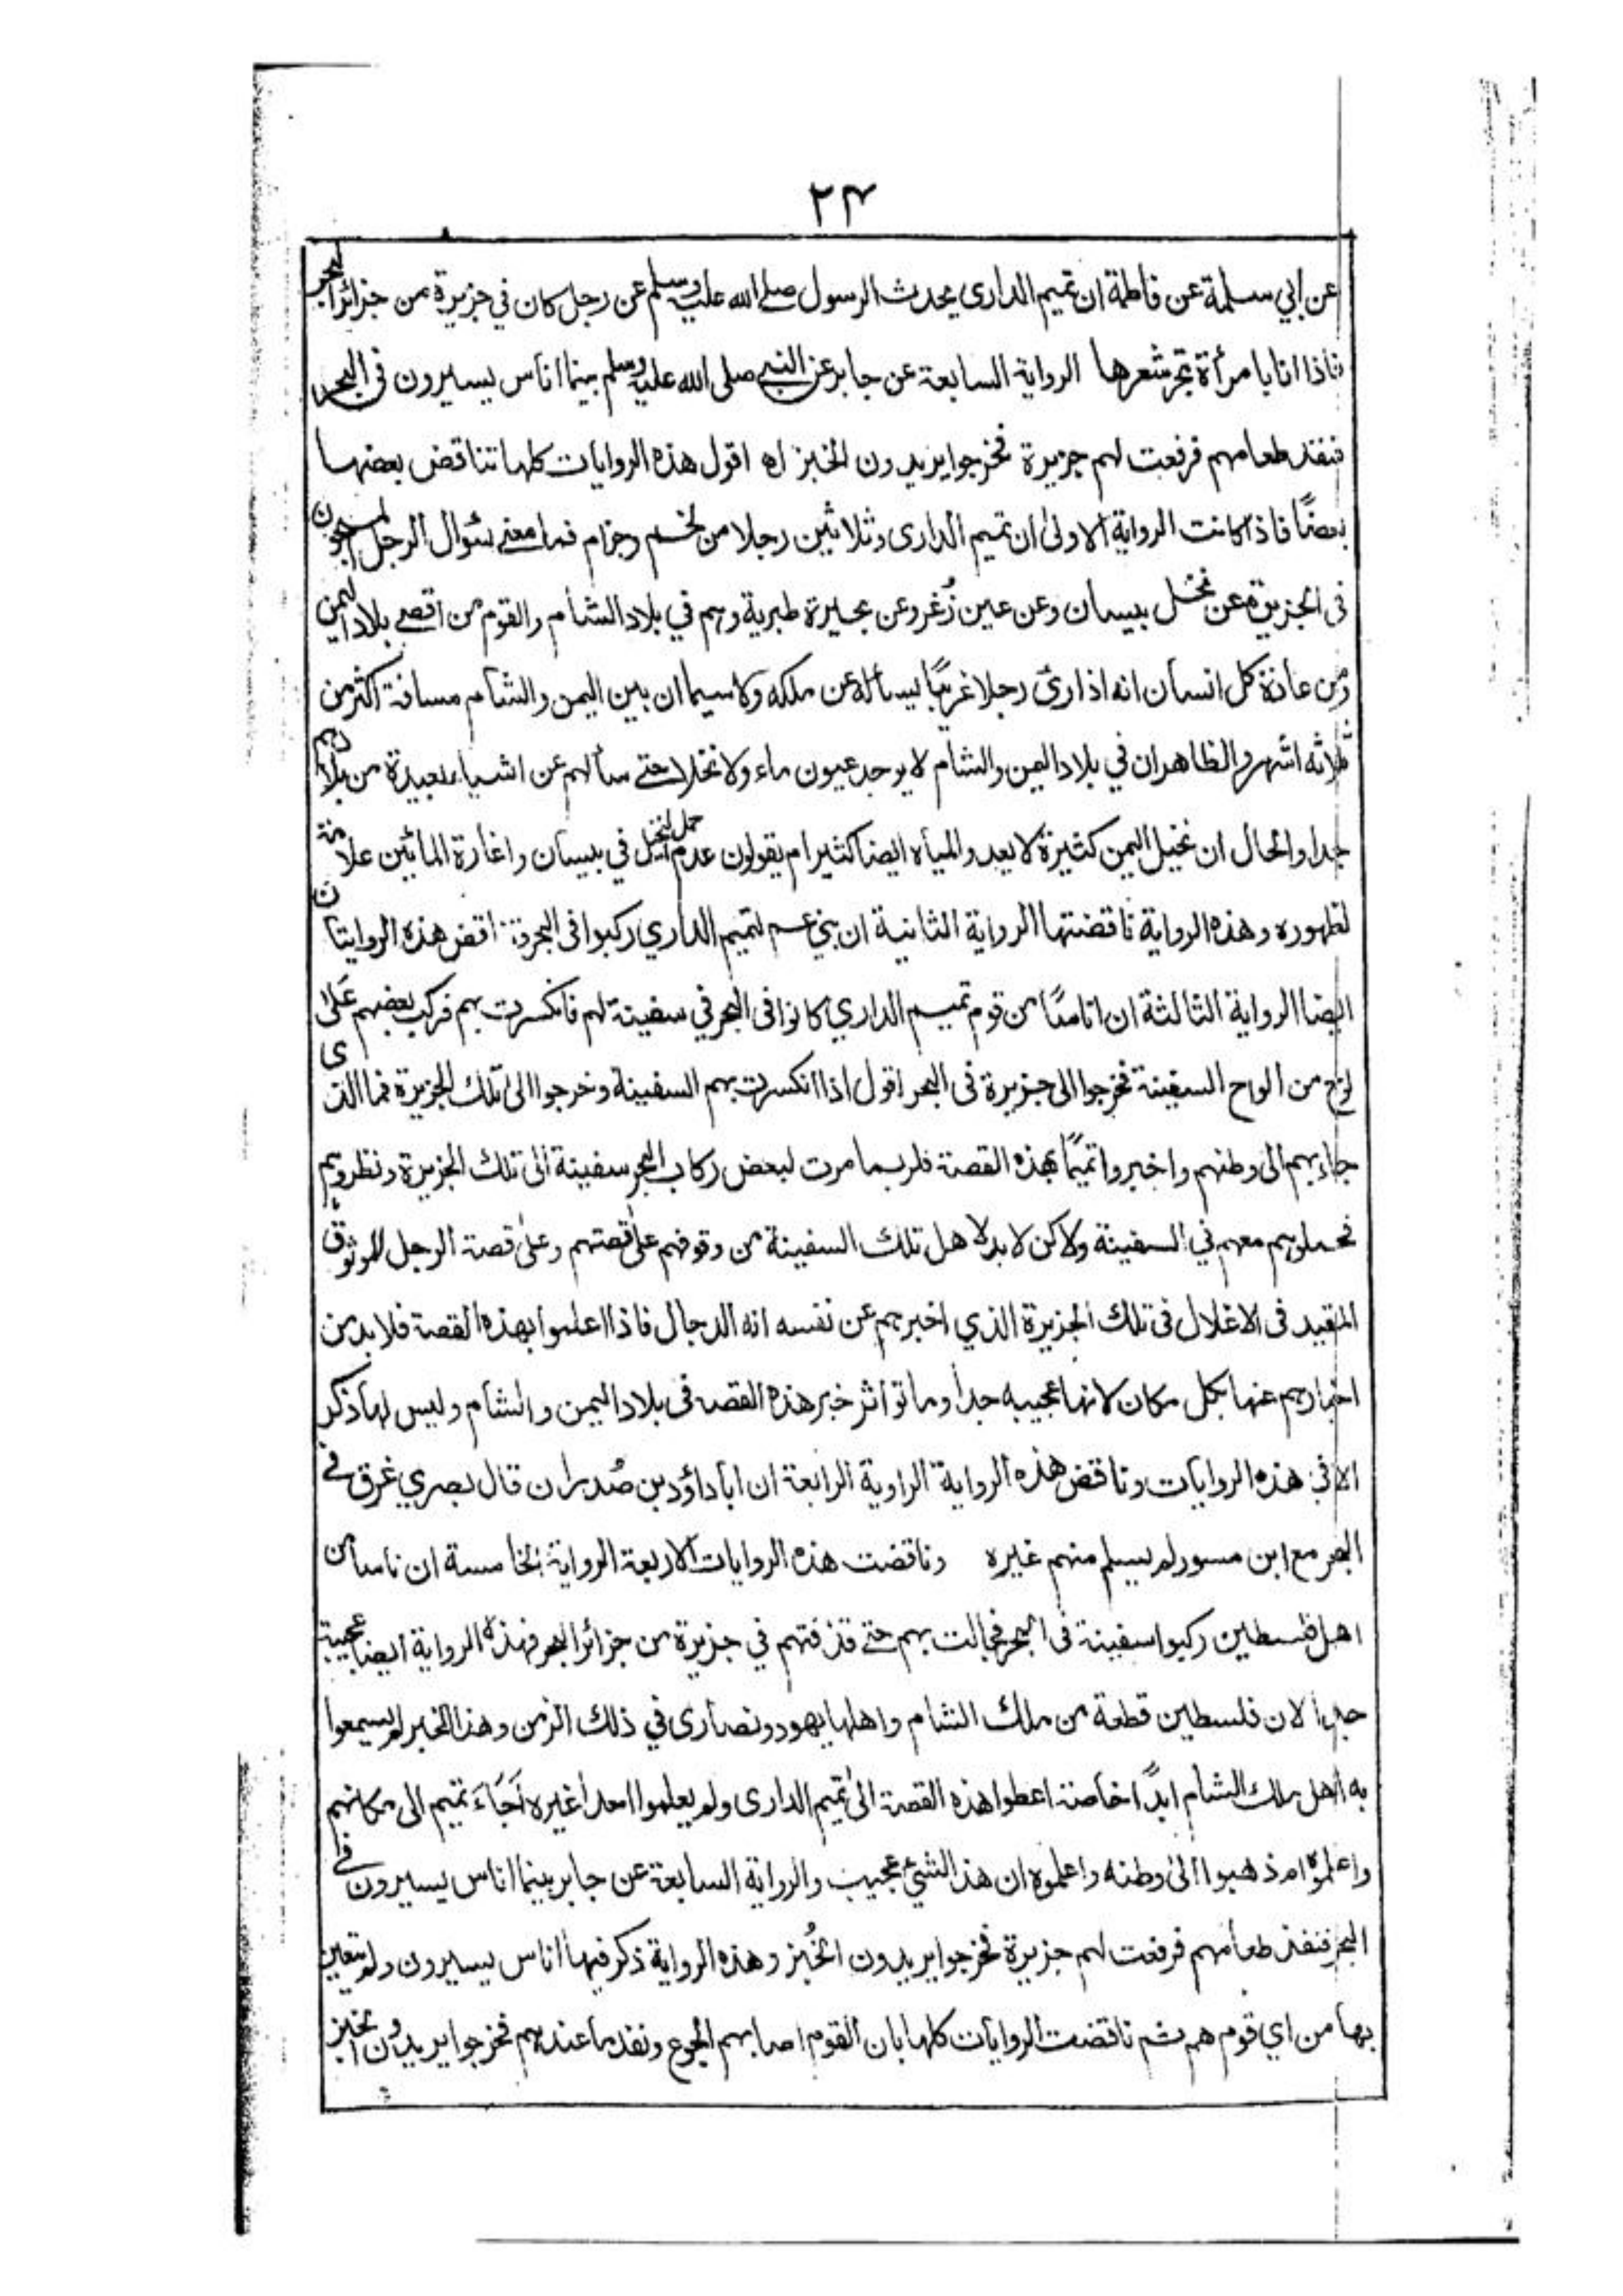 ٢٤
عن ابي سلمة عن فاطمة ان تميم الداري يحدث الرسول صلے الله عليه وسلم عن رجل كان في جزيرة من جزائر البحر
فاذا انا بامرأة تجر شعرها الرواية السابعة عن جابر عن النبي صلى الله عليه وسلم بينما اناس يسيرون فى البحر
فنفد طعامهم فرفعت لهم جزيرة فخرجوا يريدون الخبز اه اقول هذه الروايات كلها تناقض بعضها
بعضًا فاذا كانت الرواية الاولىٰ ان تميم الدارى وثلاثين رجلا من لخم وجزام فما معنے سئوال الرجل المسجون
فى الجزيرة عن نخل بيسان وعن عين زُغر وعن بحيرة طبرية وهم في بلاد الشام والقوم من اقصے بلاد اليمن
ومن عادة كل انسان انه اذا رىٰ رجلا غريبًا يسأله عن ملكه ولا سيما ان بين اليمن والشام مسافة اكثر من
ثلاثه اشهر والظاهر ان في بلاد اليمن والشام لا يوجد عيون ماء ولا نخلا حتے سألهم عن اشياء بعيدة من بلادهم
جدا والحال ان نخيل اليمن كثيرة لا يعد والمياه ايضا كثير ام يقولون عدم حمل النخيل في بيسان واغارة المائين علامة
لظهوره وهذه الرواية ناقضتها الرواية الثانية ان بني عم لتميم الداري ركبوا فى البحر وناقض هذه الروايتان
ايضا الرواية الثالثة ان اناسًا من قوم تميم الداري كانوا فى البحر في سفينة لهم فانكسرت بهم فركب بعضهم علىٰ
لوح من الواح السفينة فخرجوا الى جزيرة فى البحر اقول اذا انكسرت بهم السفينة وخرجوا الىٰ تلك الجزيرة فما الذى
جاء بهم الى وطنهم واخبروا تميمًا بهذه القصة فلربما مرت لبعض ركاب البحر سفينة الىٰ تلك الجزيرة ونظروهم
فحملوهم معهم في السفينة ولاكن لا بد لاهل تلك السفينة من وقوفهم علىٰ قصتهم وعلىٰ قصة الرجل الموثوق
المقيد فى الاغلال فى تلك الجزيرة الذي اخبرهم عن نفسه انه الدجال فاذا اعلموا بهذه القصة فلا بد من
اخبارهم عنها بكل مكان لانها عجيبه جدا وما تواثر خبر هذه القصه فى بلاد اليمن والشام وليس لها ذكر
الا في هذه الروايات وناقض هذه الرواية الراوية الرابعة ان ابا داؤد بن صُدران قال بصري غرق فے
البحر مع ابن مسور لم يسلم منهم غيره وناقضت هذه الروايات الاربعة الرواية الخامسة ان ناسا من
اهل فلسطين ركبوا سفينة فى البحر فجالت بهم حتے قذفتهم في جزيرة من جزائر البحر فهذه الرواية ايضا عجيبة
جدا لان فلسطين قطعة من ملك الشام واهلها يهود ونصارى في ذلك الزمن وهذا الخبر لم يسمعوا
به اهل ملك الشام ابدًا خاصة اعطوا هذه القصة الىٰ تميم الدارى ولم يعلموا احدا غيره اَجَاءَ تميم الى مكانهم
واعلموه ام ذهبوا الىٰ وطنه واعلموه ان هذا الشئ عجيب والرواية السابعة عن جابر بينما اناس يسيرون فے
البحر فنفد طعامهم فرفعت لهم جزيرة فخرجوا يريدون الخُبز وهذه الرواية ذكر فيها اناس يسيرون ولم يتعين
بها من اي قوم هم ثم ناقضت الروايات كلها بان القوم اصابهم الجوع ونفد ما عندهم فخرجوا يريدون الخبز